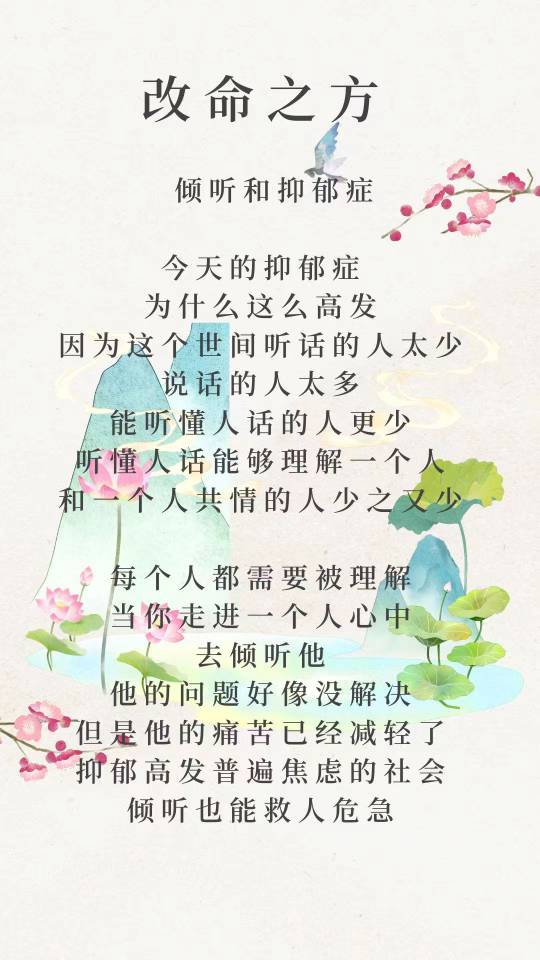 改命之方
倾听和抑郁症
今天的抑郁症
为什么这么高发
因为这个世间听话的人太少
说话的人太多
能听懂人话的人更少
听懂人话能够理解一个人
和一个人共情的人少之又少
每个人都需要被理解
当你走进一个人心中
去倾听他
他的问题好像没解决
但是他的痛苦已经减轻了
抑郁高发普遍焦虑的社会
倾听也能救人危急